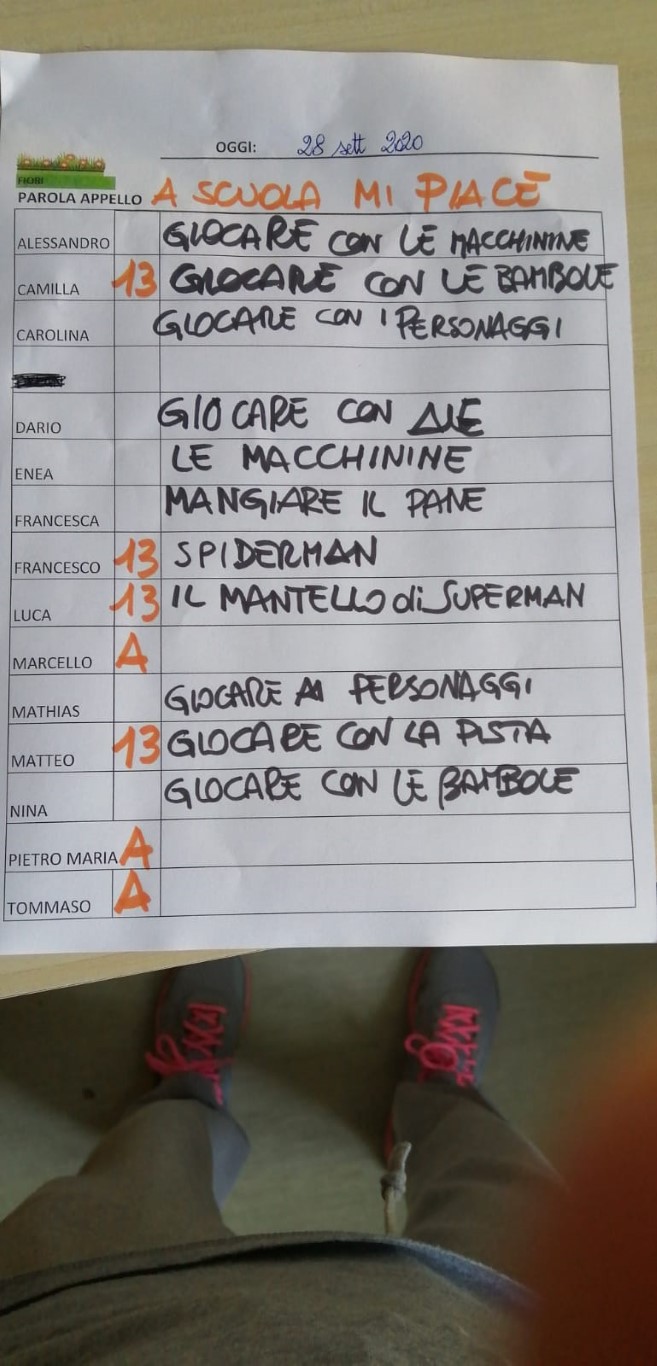 OGGI: 28 sett 2020
FIORI
PAROLA APPELLO A SCUOLA MI PIACE
ALESSANDRO GIOCARE CON LE MACCHININE
CAMILLA 13 GIOCARE CON LE BAMBOLE
CAROLINA GIOCARE CON I PERSONAGGI
DARIO GIOCARE CON ALE
ENEA LE MACCHININE
FRANCESCA MANGIARE IL PANE
FRANCESCO 13 SPIDERMAN
LUCA 13 IL MANTELLO di SUPERMAN
MARCELLO A
MATHIAS GIOCARE AI PERSONAGGI
MATTEO 13 GIOCARE CON LA PISTA
NINA GIOCARE CON LE BAMBOLE
PIETRO MARIA A
TOMMASO A